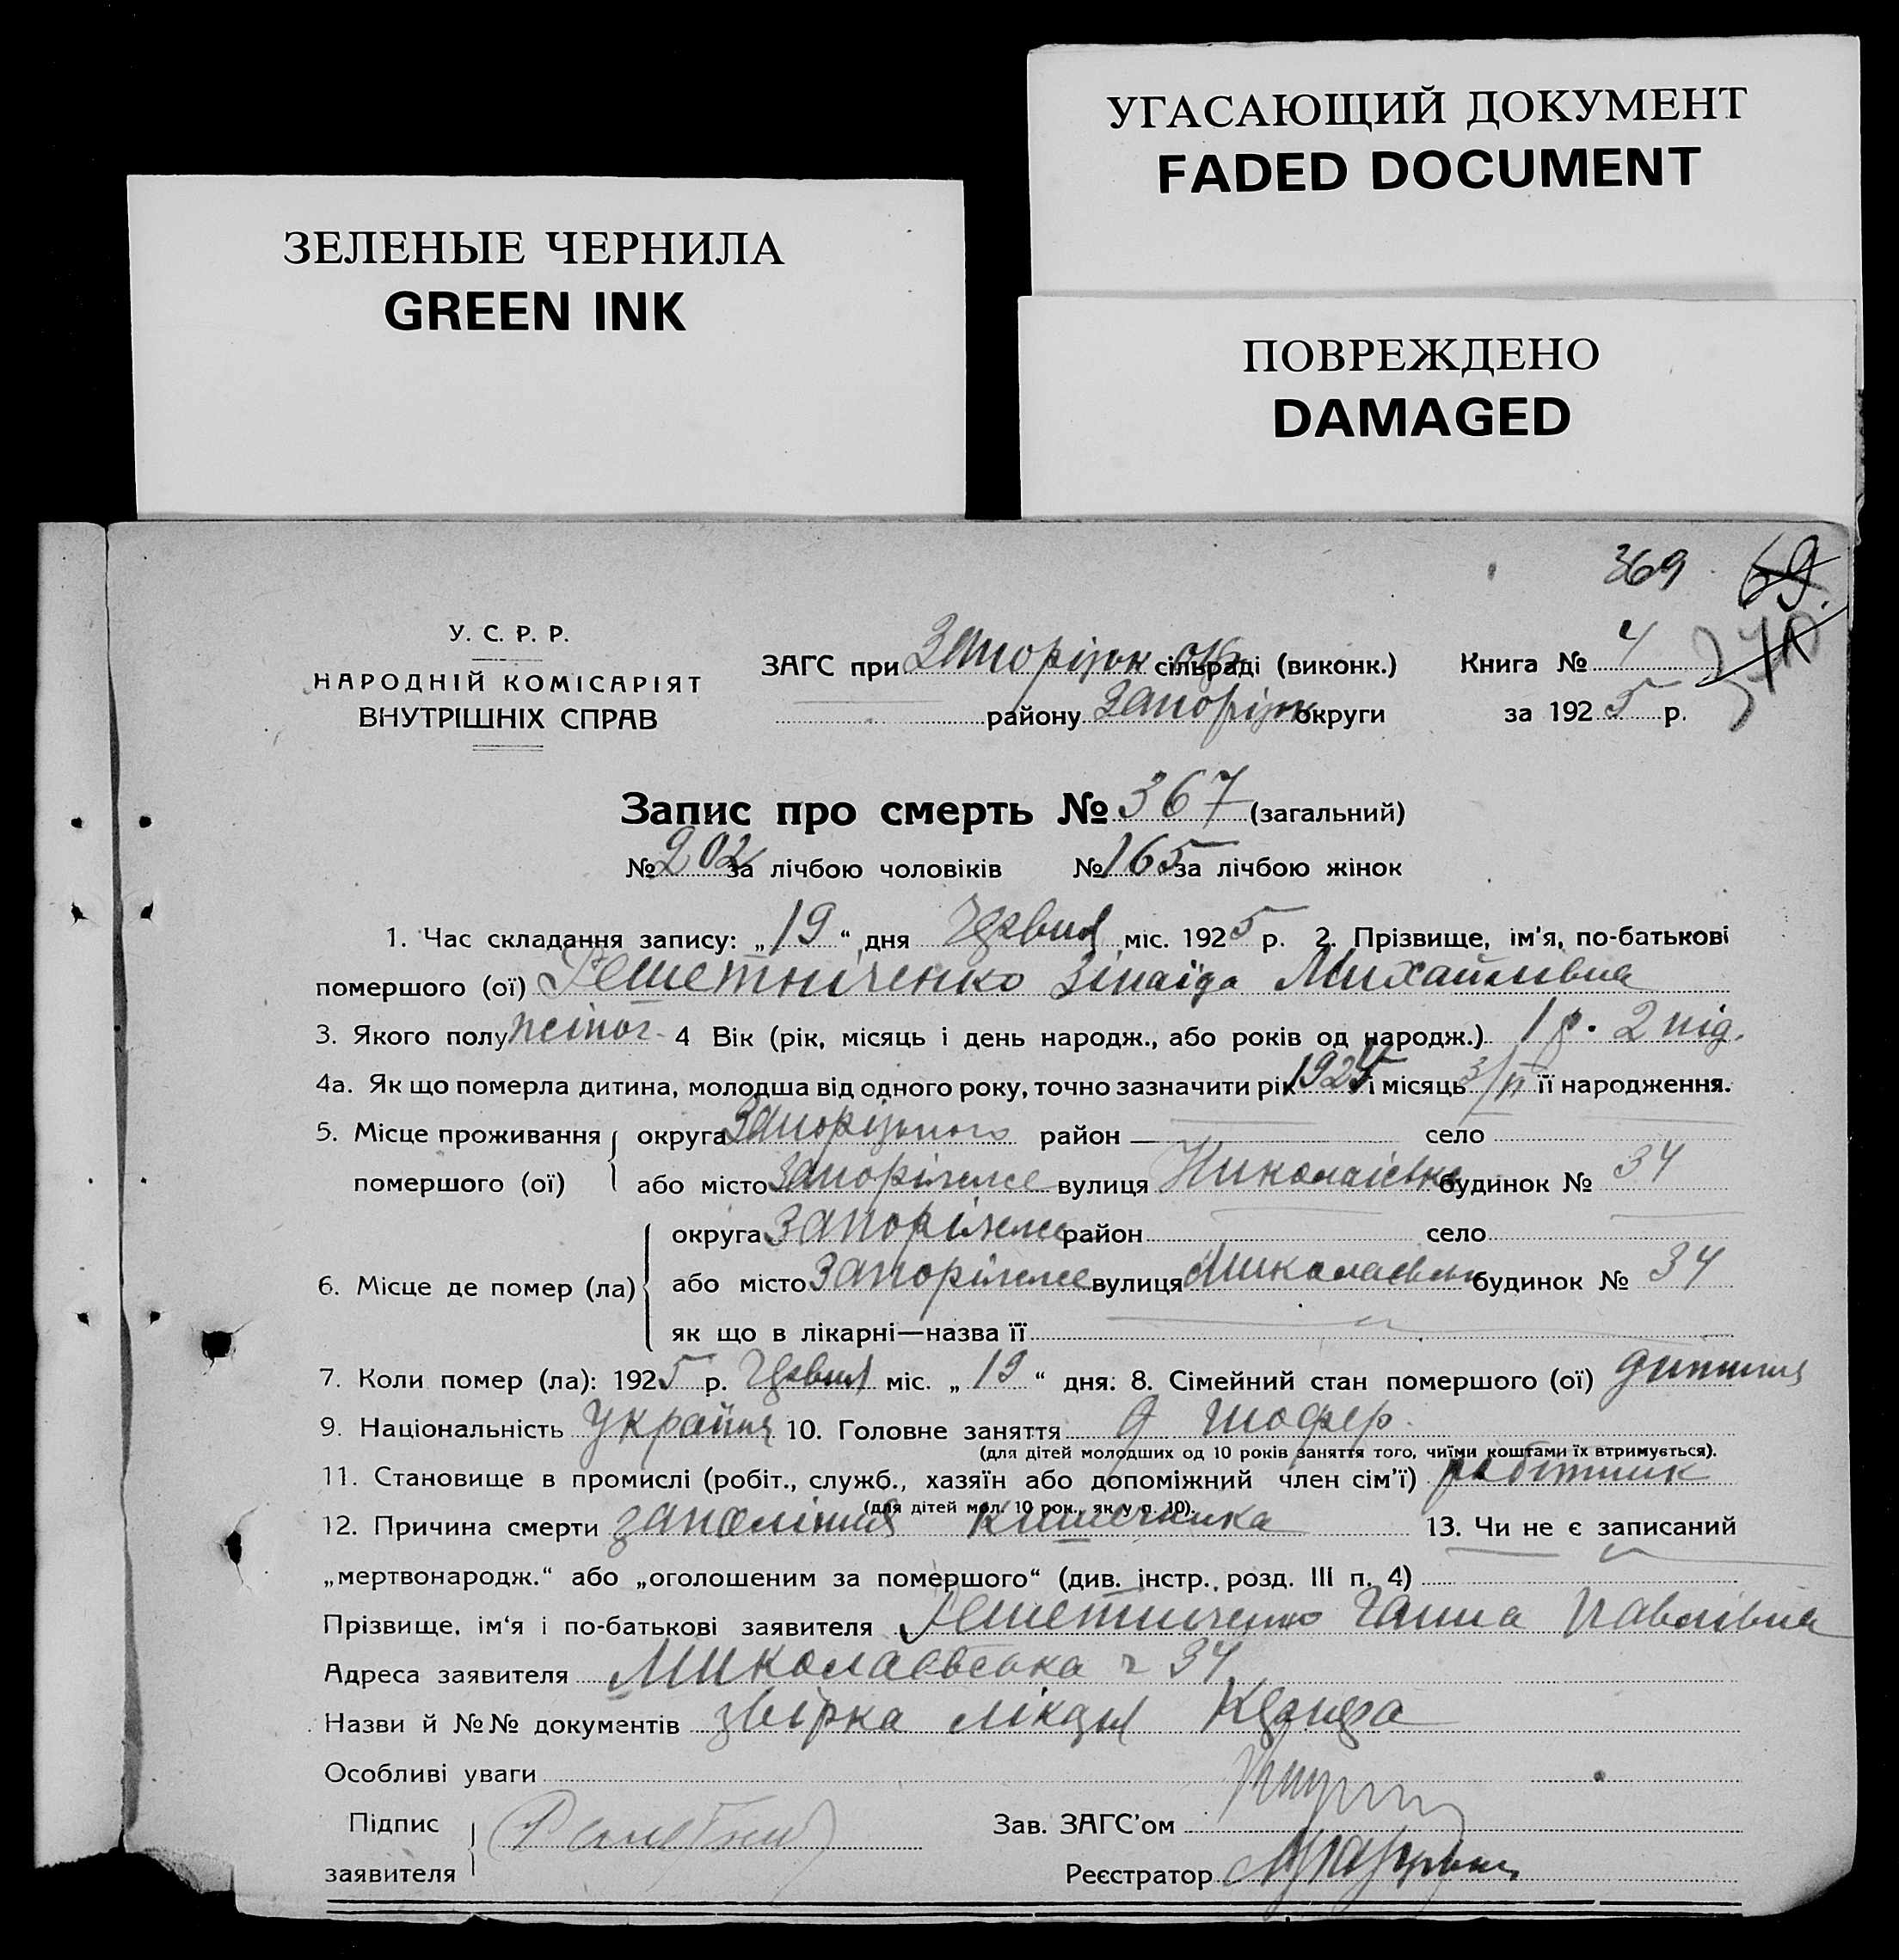 УГАСАЮЩИЙ ДОКУМЕНТ
FADED DOCUMENT
ЗЕЛЕНЫЕ ЧЕРНИЛА
GREEN INK
ПОВРЕЖДЕНО
DAMAGED
369 69.
У. С. Р. Р.
НАРОДНІЙ КОМІСАРІЯТ
ВНУТРІШНІХ СПРАВ
ЗАГС при Запоріжк окр сільраді (виконк.) Книга № 4
району Запоріжк округи за 1925 р.
Запис про смерть № 367 (загальний)
№ 202 за лічбою чоловіків № 165 за лічбою жінок
1. Час складання запису: „19“ дня Червня міс. 1925 р. 2. Прізвище, ім'я, по-батькові
помершого (ої) Решетніченко Зінаїда Михайлівна
3. Якого полу жіноч. 4 Вік (рік, місяць і день народж., або років од народж.) 1 р. 2 
4а. Як що померла дитина, молодша від одного року, точно зазначити рік 1924 і місяць 3/ІІ її народження.
5. Місце проживання помершого (ої) округа район село
або місто Запоріжже вулиця Николаівська будинок № 34
6. Місце де помер (ла) округа Запоріжже район село
або місто Запоріжже вулиця Миколаевськ будинок № 34
як що в лікарні—назва її
7. Коли помер (ла): 1925 р. Червня міс. „19“ дня. 8. Сімейний стан помершого (ої) дитина
9. Національність Україн 10. Головне заняття шофер
(для дітей молодших од 10 років заняття того, чиїми коштами їх втримується).
11. Становище в промислі (робіт., служб., хазяїн або допоміжний член сім'ї) робітник
(для дітей мол. 10 рок., як у п. 10).
12. Причина смерти запаління кишечника 13. Чи не є записаний
„мертвонародж.“ або „оголошеним за помершого“ (див. інстр., розд. III п. 4)
Прізвище, ім'я і по-батькові заявителя Решетниченко Ганна Павлівна
Адреса заявителя Миколаевська ч 34
Назви й №№ документів лікаря
Особливі уваги
Підпис заявителя
Зав. ЗАГС'ом
Реєстратор